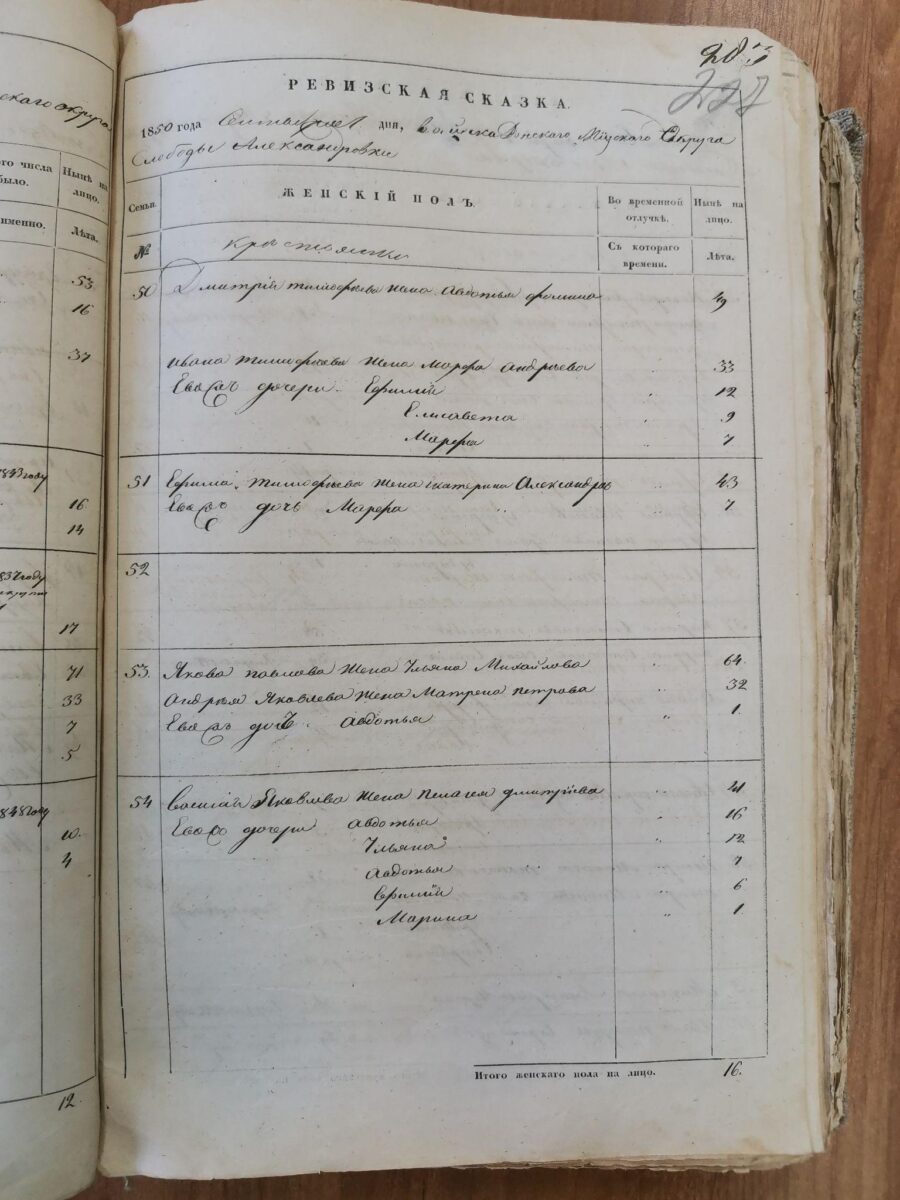 скаго округа
го числа
было.
Нынѣ на
лицо.
именно.
Лѣта.
53
16
37
1843 году
16
14
1837 году
17
71
33
7
5
1848 году
10.
4
12.
227
РЕВИЗСКАЯ СКАЗКА.
1850 года дня, войска Донскаго Міускаго Округа
Слободы Александровки
Семьи.
ЖЕНСКІЙ ПОЛЪ.
Во временной
отлучкѣ.
Нынѣ на
лицо.
№
крестьянки
Съ котораго
времени.
Лѣта.
50 Дмитрій тимофѣева жена Авдотья фомина 49
ивана тимофѣева жена Марфа андрѣева " 33
Его дочери Ефимій " 12
Елисавета " 9
Марфа " 7
51 Ефима тимофѣева жена екатерина Александрова " 43
Его дочь Марфа " 7
52
53. Якова павлова жена Ульяна Михайлова " 64.
андрея Яковлева жена Матрена петрова " 32
Его дочь авдотья " 1.
54 Василій Яковлева жена пелагея дмитріева " 41
Его дочери авдотья " 16
Ульяна " 12
авдотья " 7
ефимій " 6
Марина " 1.
Итого женскаго пола на лицо. 16.